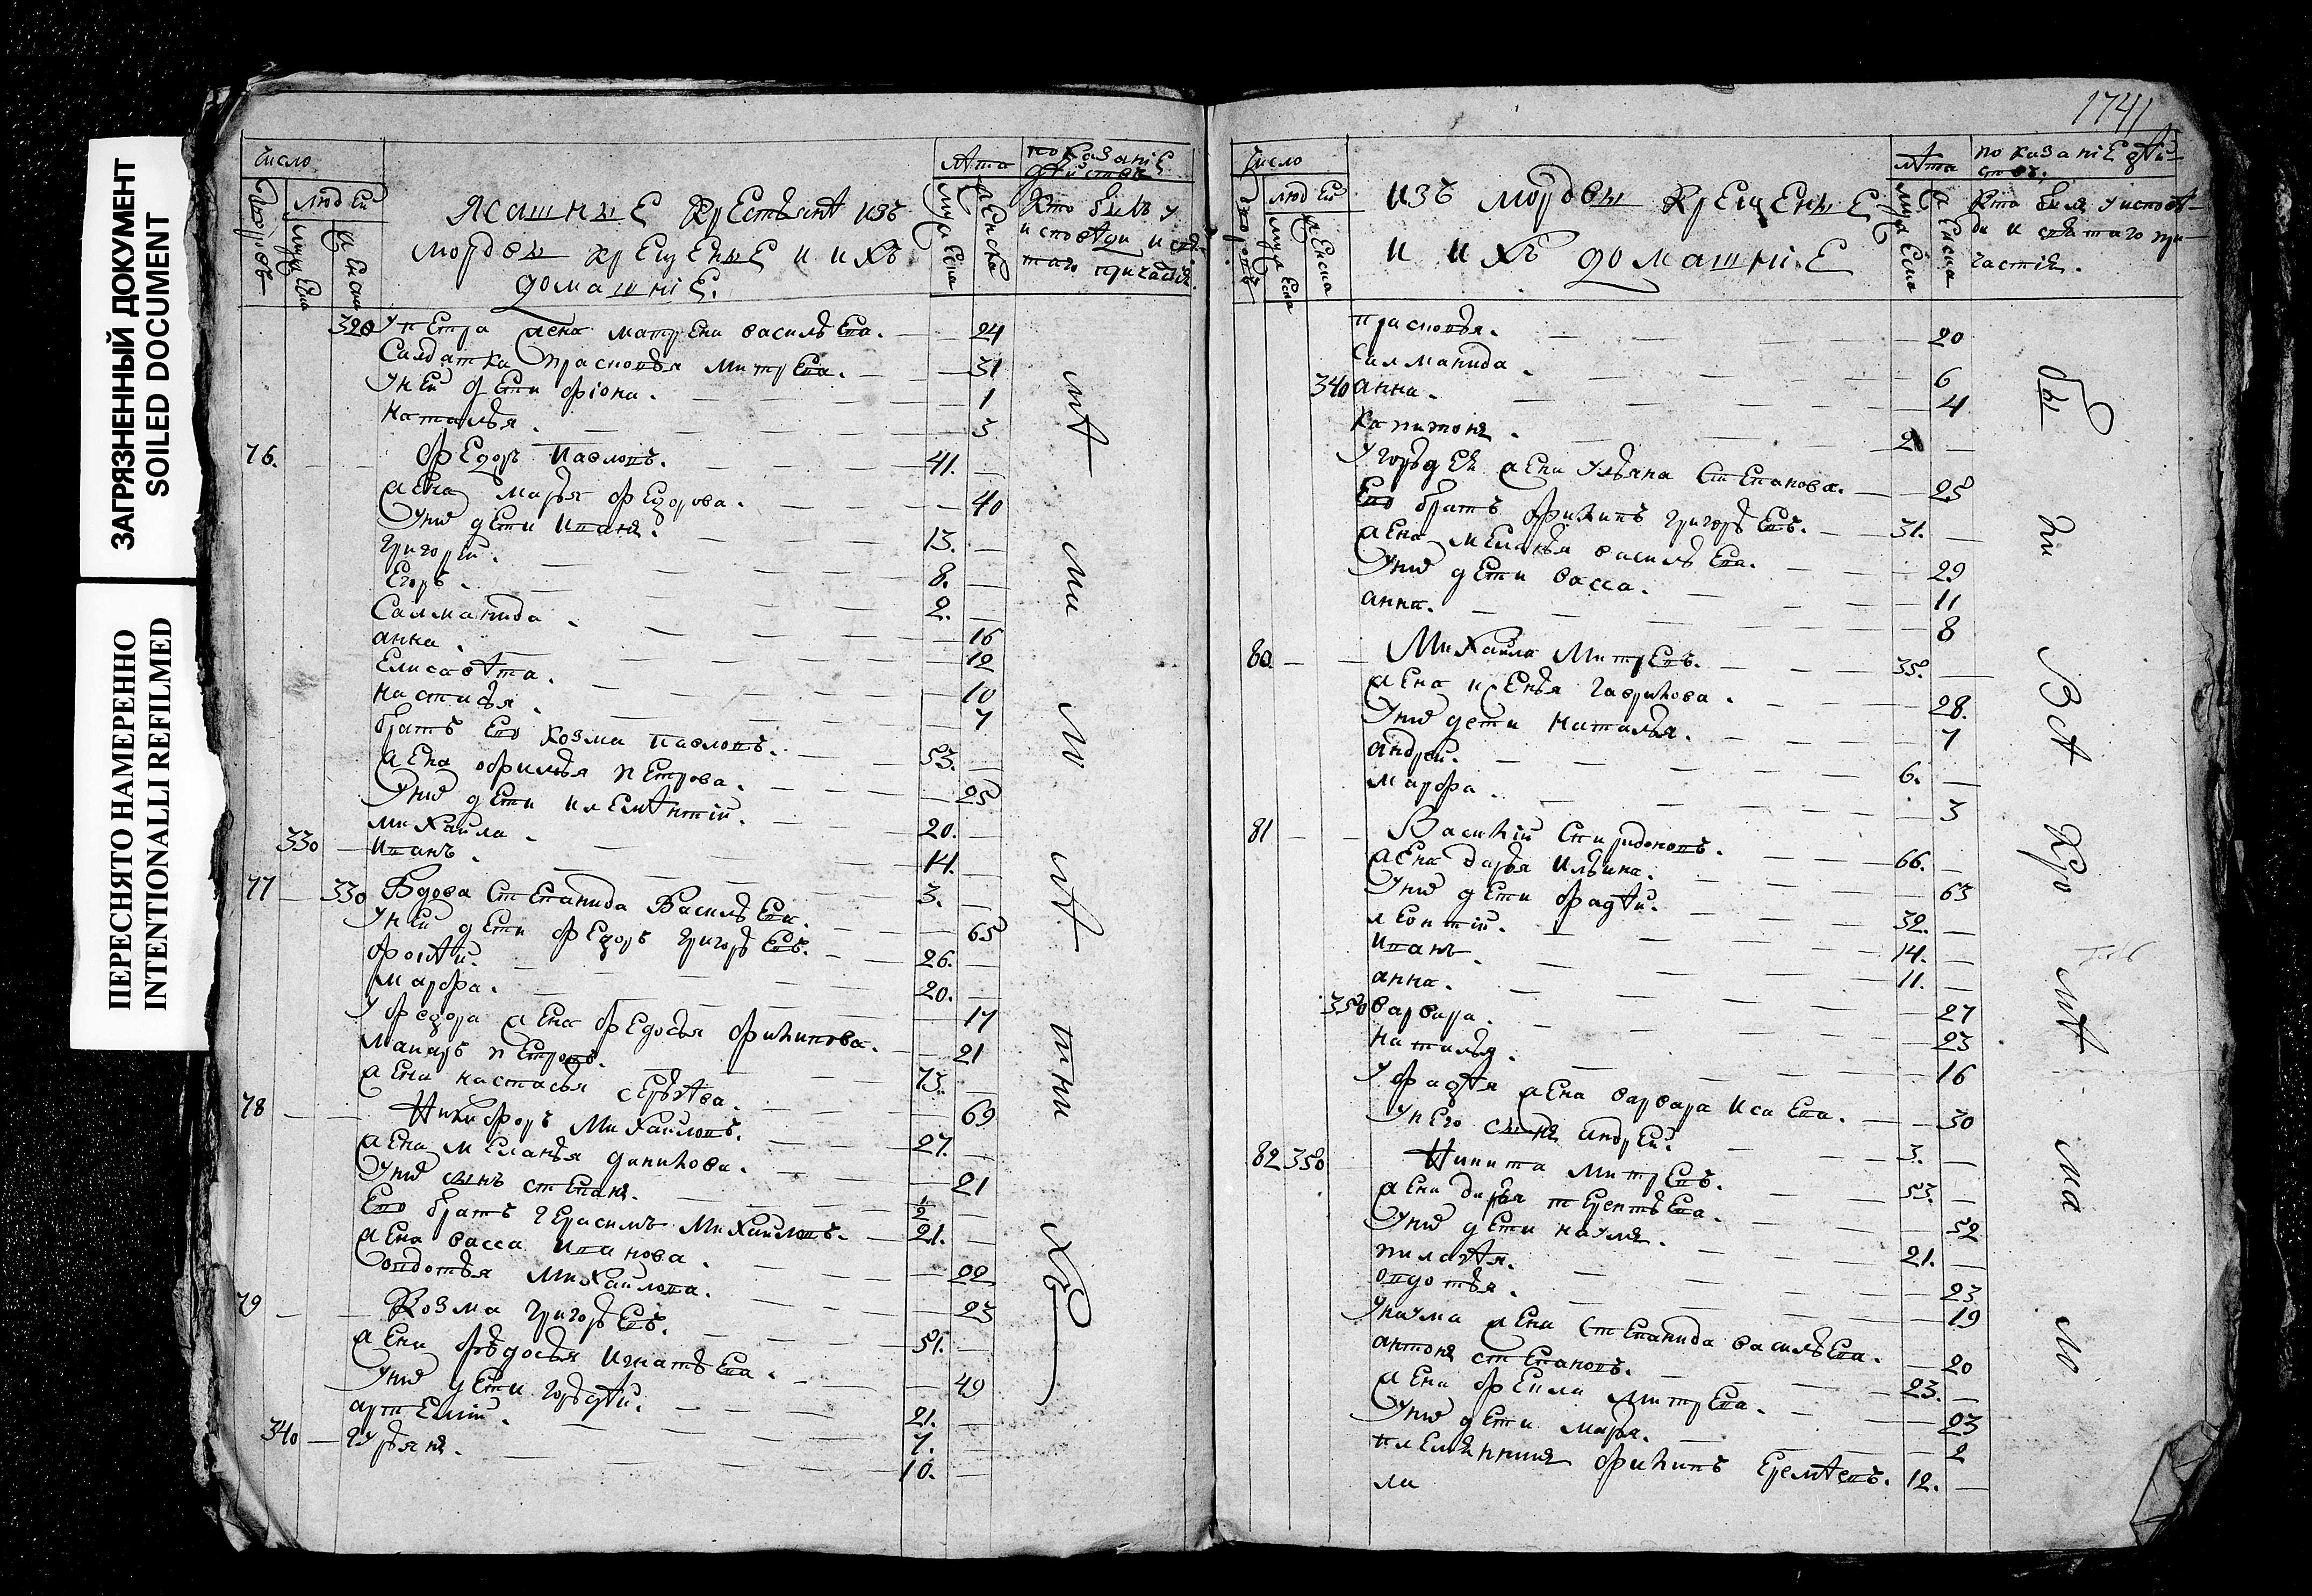 ЗАГРЯЗНЕННЫЙ ДОКУМЕНТ
SOILED DOCUMENT
ПЕРЕСНЯТО НАМЕРЕННО
INTENTIONALLI REFILMED
число
людей
лѣта
показаніе
Ясашные крестьянѣ изъ
мордвы крещеные и ихъ
домашніе.
кто былъ у
исповѣди и свя
таго причастія.
320 У Петра жена Матрена Васильева. 24
Салдатка Прасковья Митрева. 31
У ней дети Фіона. 1
Наталья. 3
76. Федоръ Павловъ. 41.
жена Марья Федорова. 40
У них дети Иванъ. 13.
Григорей. 8.
Егоръ. 2.
Саламанида. 16
Анна. 12
Елисавѣта. 10
Настасья. 7
братъ ево Козма Павловъ. 53.
жена Офимья Петрова. 25
У них дети 20.
Михайла. 14.
330 Иванъ. 3.
77 330 Вдова Степанида Васильева. 65
У ней дети Федоръ Григорьевъ. 26.
20.
Марфа. 17
У Федора жена Федосья Филипова. 21
Макаръ Петровъ. 73.
жена Настасья Сергѣева. 69
78 Никифоръ Михайловъ. 27.
жена Меланья Данилова. 21
У них сынъ Степанъ. 1/2
Ево братъ Герасимъ Михайловъ. 21.
жена Васса Иванова. 22
Овдотья Михайлова. 23
79 Козма Григорьевъ. 51.
жена Федосья Игнатьева. 49
У них дети Гордѣй. 21.
Артемій. 7.
340 Гурьянъ. 10.
1741
число
людей
лѣта
показаніе дѣй
ствъ.
изъ мордвы крещеные
и ихъ домашніе
кто былъ у исповѣ
ди и святаго при
частія.
Прасковья. 20
Саламанида. 6
340 Анна. 4
Капитонъ. 2
У Гордея жена Ульяна Степанова. 25
Ево братъ Филипъ Григорьевъ. 31.
жена Меланья Васильева. 29
У них дети Васса. 11
Анна. 8
80 Михайла Митревъ. 35.
жена Ксенья Гаврилова. 28.
У них дети Наталья. 7
Андрей. 6.
Марфа. 3
81 Василій Спиридоновъ. 66.
жена Дарья Ильина. 63
У них дети Фадѣй. 32.
Леонтій. 14.
Иванъ. 11.
Анна. 27
350 Варвара. 23
Наталья. 16
У Фадѣя жена Варвара Исаева. 30
У него сынъ Андрей. 3.
82 350 Никита Митревъ. 53.
жена Дарья Терентьева. 52
У них дети Наумъ. 21.
Пелагѣя. 23
Овдотья. 19
У Наума жена Степанида Васильева. 20
Антонъ Степановъ. 23.
жена Фекла Митрева. 23
У них дети Марья. 2
племянникъ Филипъ Еремѣевъ. 12.